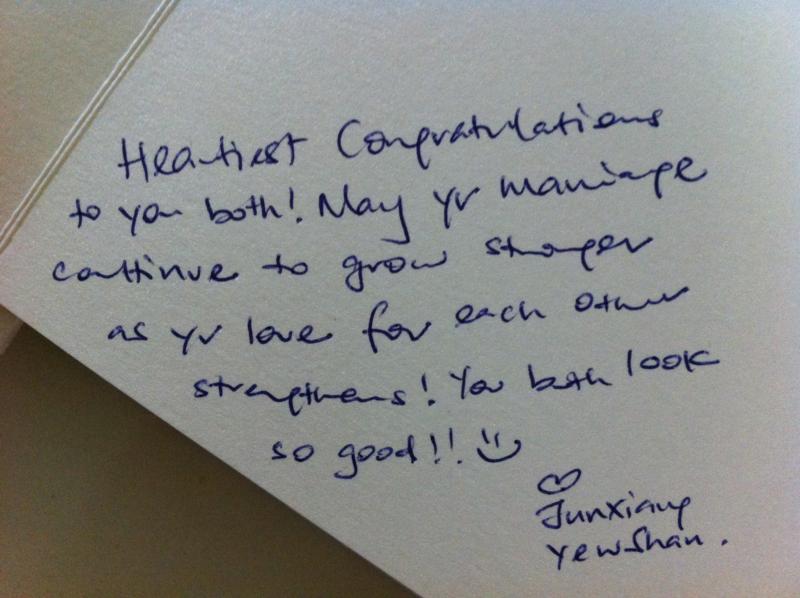 Heartiest Congratulations
to you both! May yr marriage
continue to grow stronger
as yr love for each other
strengthens! You both look
so good!! :)
♡
Junxiang
Yewshan.